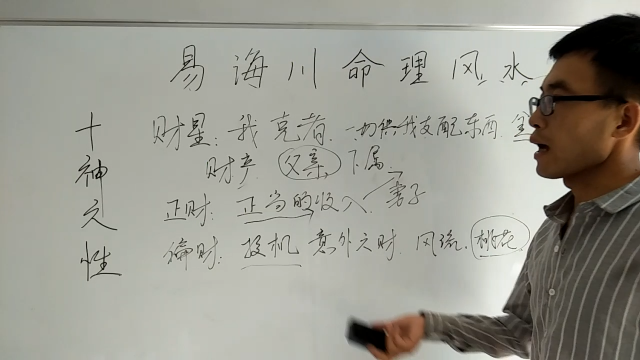 易海川命理风水
十神之性
财星：我克者，一切供我支配东西，金
财产 父亲 下属
正财：正当的收入 → 妻子
偏财：投机 意外之财、风流、桃花